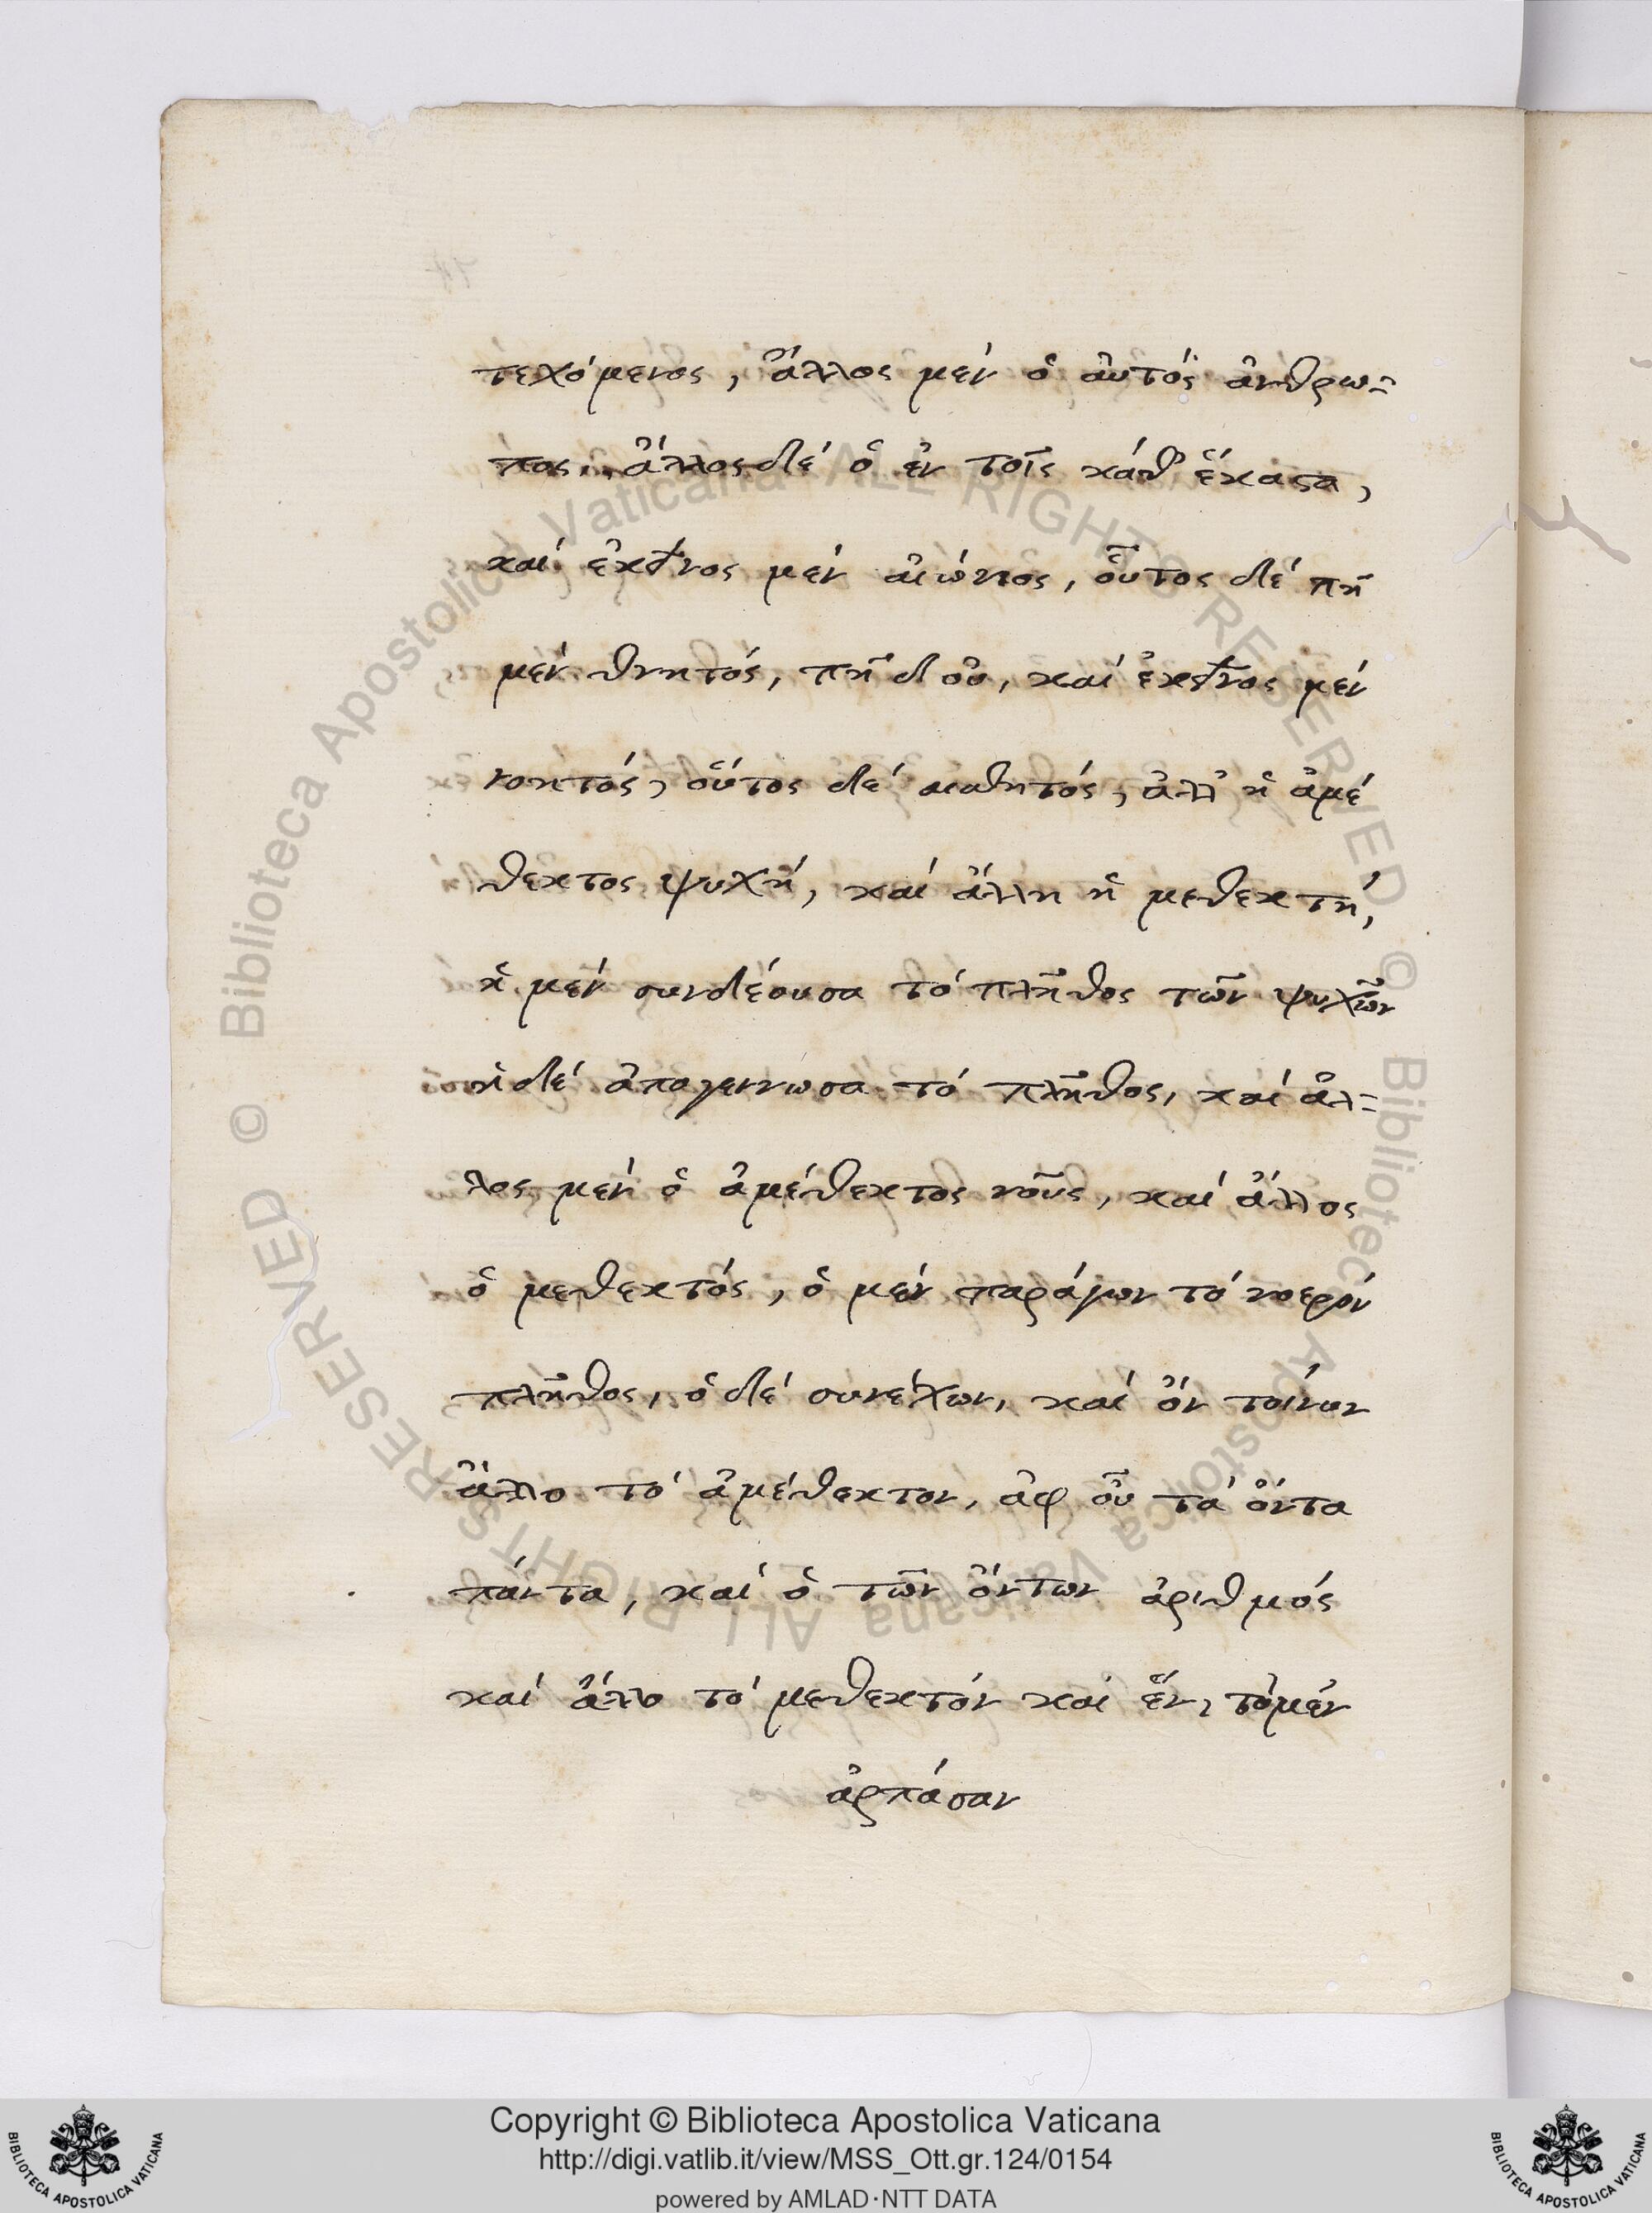 τεχόμενος, ἄλλος μέν ὁ αὐτός ἄνθρω-
πος, ἄλλος δέ ὁ ἐν τοῖς κάθ' ἕκαστα,
καί ἐκεῖνος μέν αἰώνιος, οὗτος δέ πῆ
μέν θνητός, πῆ δ οὔ, καί ἐκεῖνος μέν
νοητός, οὗτος δέ αισθητός, ἀλλ' ἡ ἀμέ
θεκτος ψυχή, καί ἄλλη ἡ μεθεκτή,
ἡ μέν συνδέουσα τό πλῆθος τῶν ψυχῶν
ἡ δέ ἀπογεννωσα τό πλῆθος, καί ἄλ-
λος μέν ὁ ἀμέθεκτος νοῦς, καί ἄλλος
ὁ μεθεκτός, ὁ μέν παράγων τό νοερόν
πλῆθος, ὁ δέ συνέχων, καί ὄν τοίνυν
ἄλλο τό ἀμέθεκτον, ἀφ οὗ τά ὄντα
πάντα, καί ὁ τῶν ὄντων ἀριθμός
καί ἄλλο τό μεθεκτόν καί ἕν, τό μέν
ἁρπάσαν
Copyright © Biblioteca Apostolica Vaticana
http://digi.vatlib.it/view/MSS_Ott.gr.124/0154
powered by AMLAD·NTT DATA
BIBLIOTECA APOSTOLICA VATICANA
BIBLIOTECA APOSTOLICA VATICANA
© Biblioteca Apostolica Vaticana ALL RIGHTS RESERVED © Biblioteca Apostolica Vaticana ALL RIGHTS RESERVED